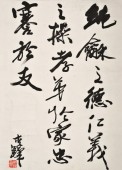 純龢之德仁義
之操孝華於家忠
塞於友